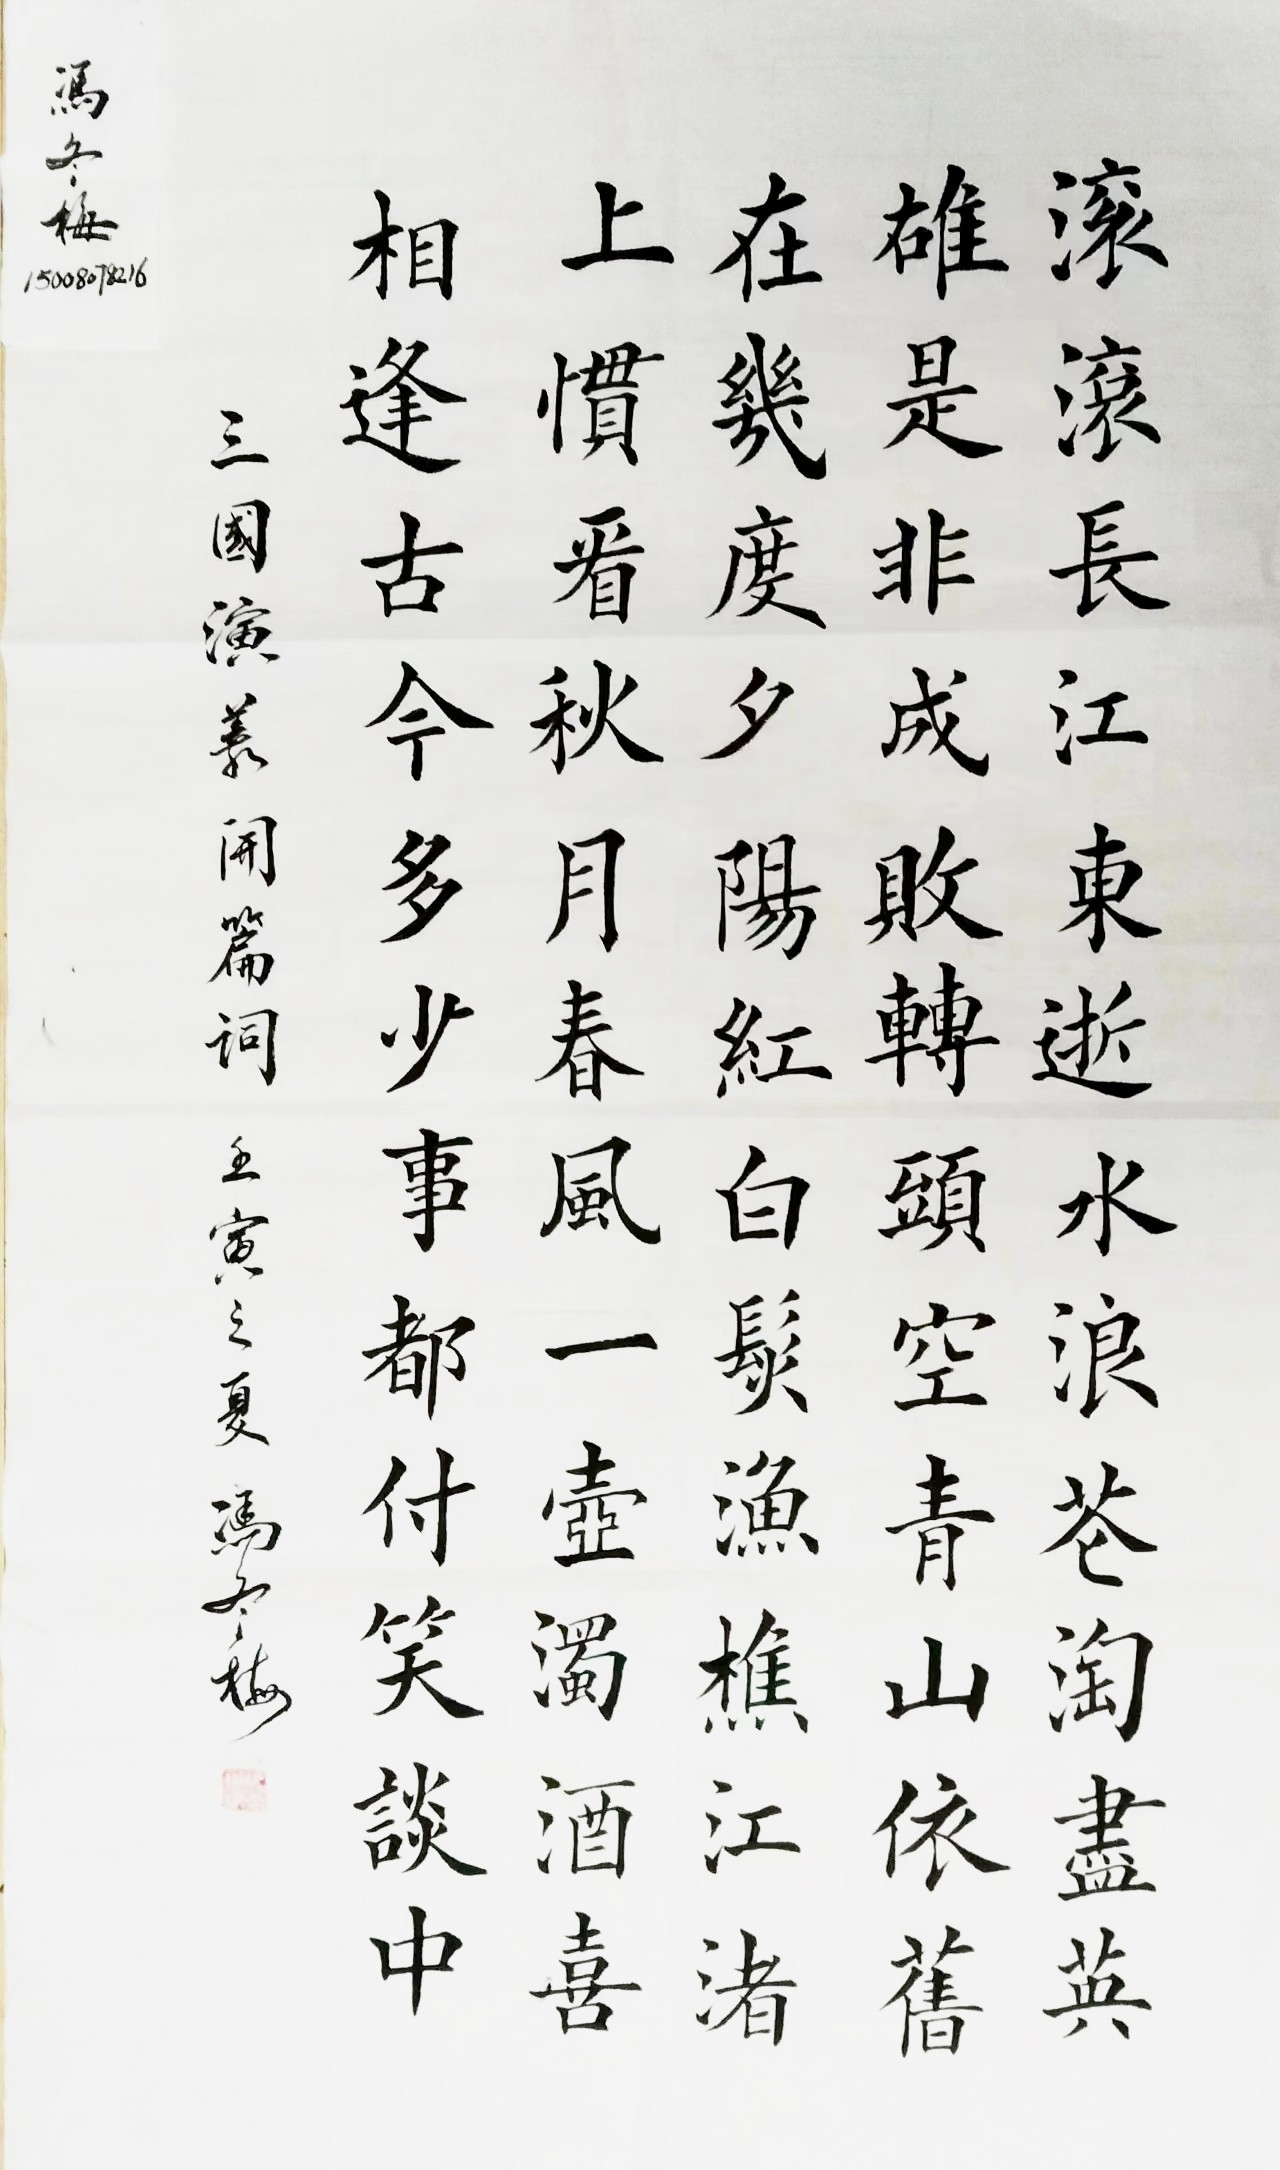 滚滾長江東逝水浪花淘盡英
雄是非成敗轉頭空青山依舊
在幾度夕陽紅白髮漁樵江渚
上慣看秋月春風一壺濁酒喜
相逢古今多少事都付笑談中
三國演義開篇詞 壬寅之夏 馮冬梅
馮冬梅
15008078216